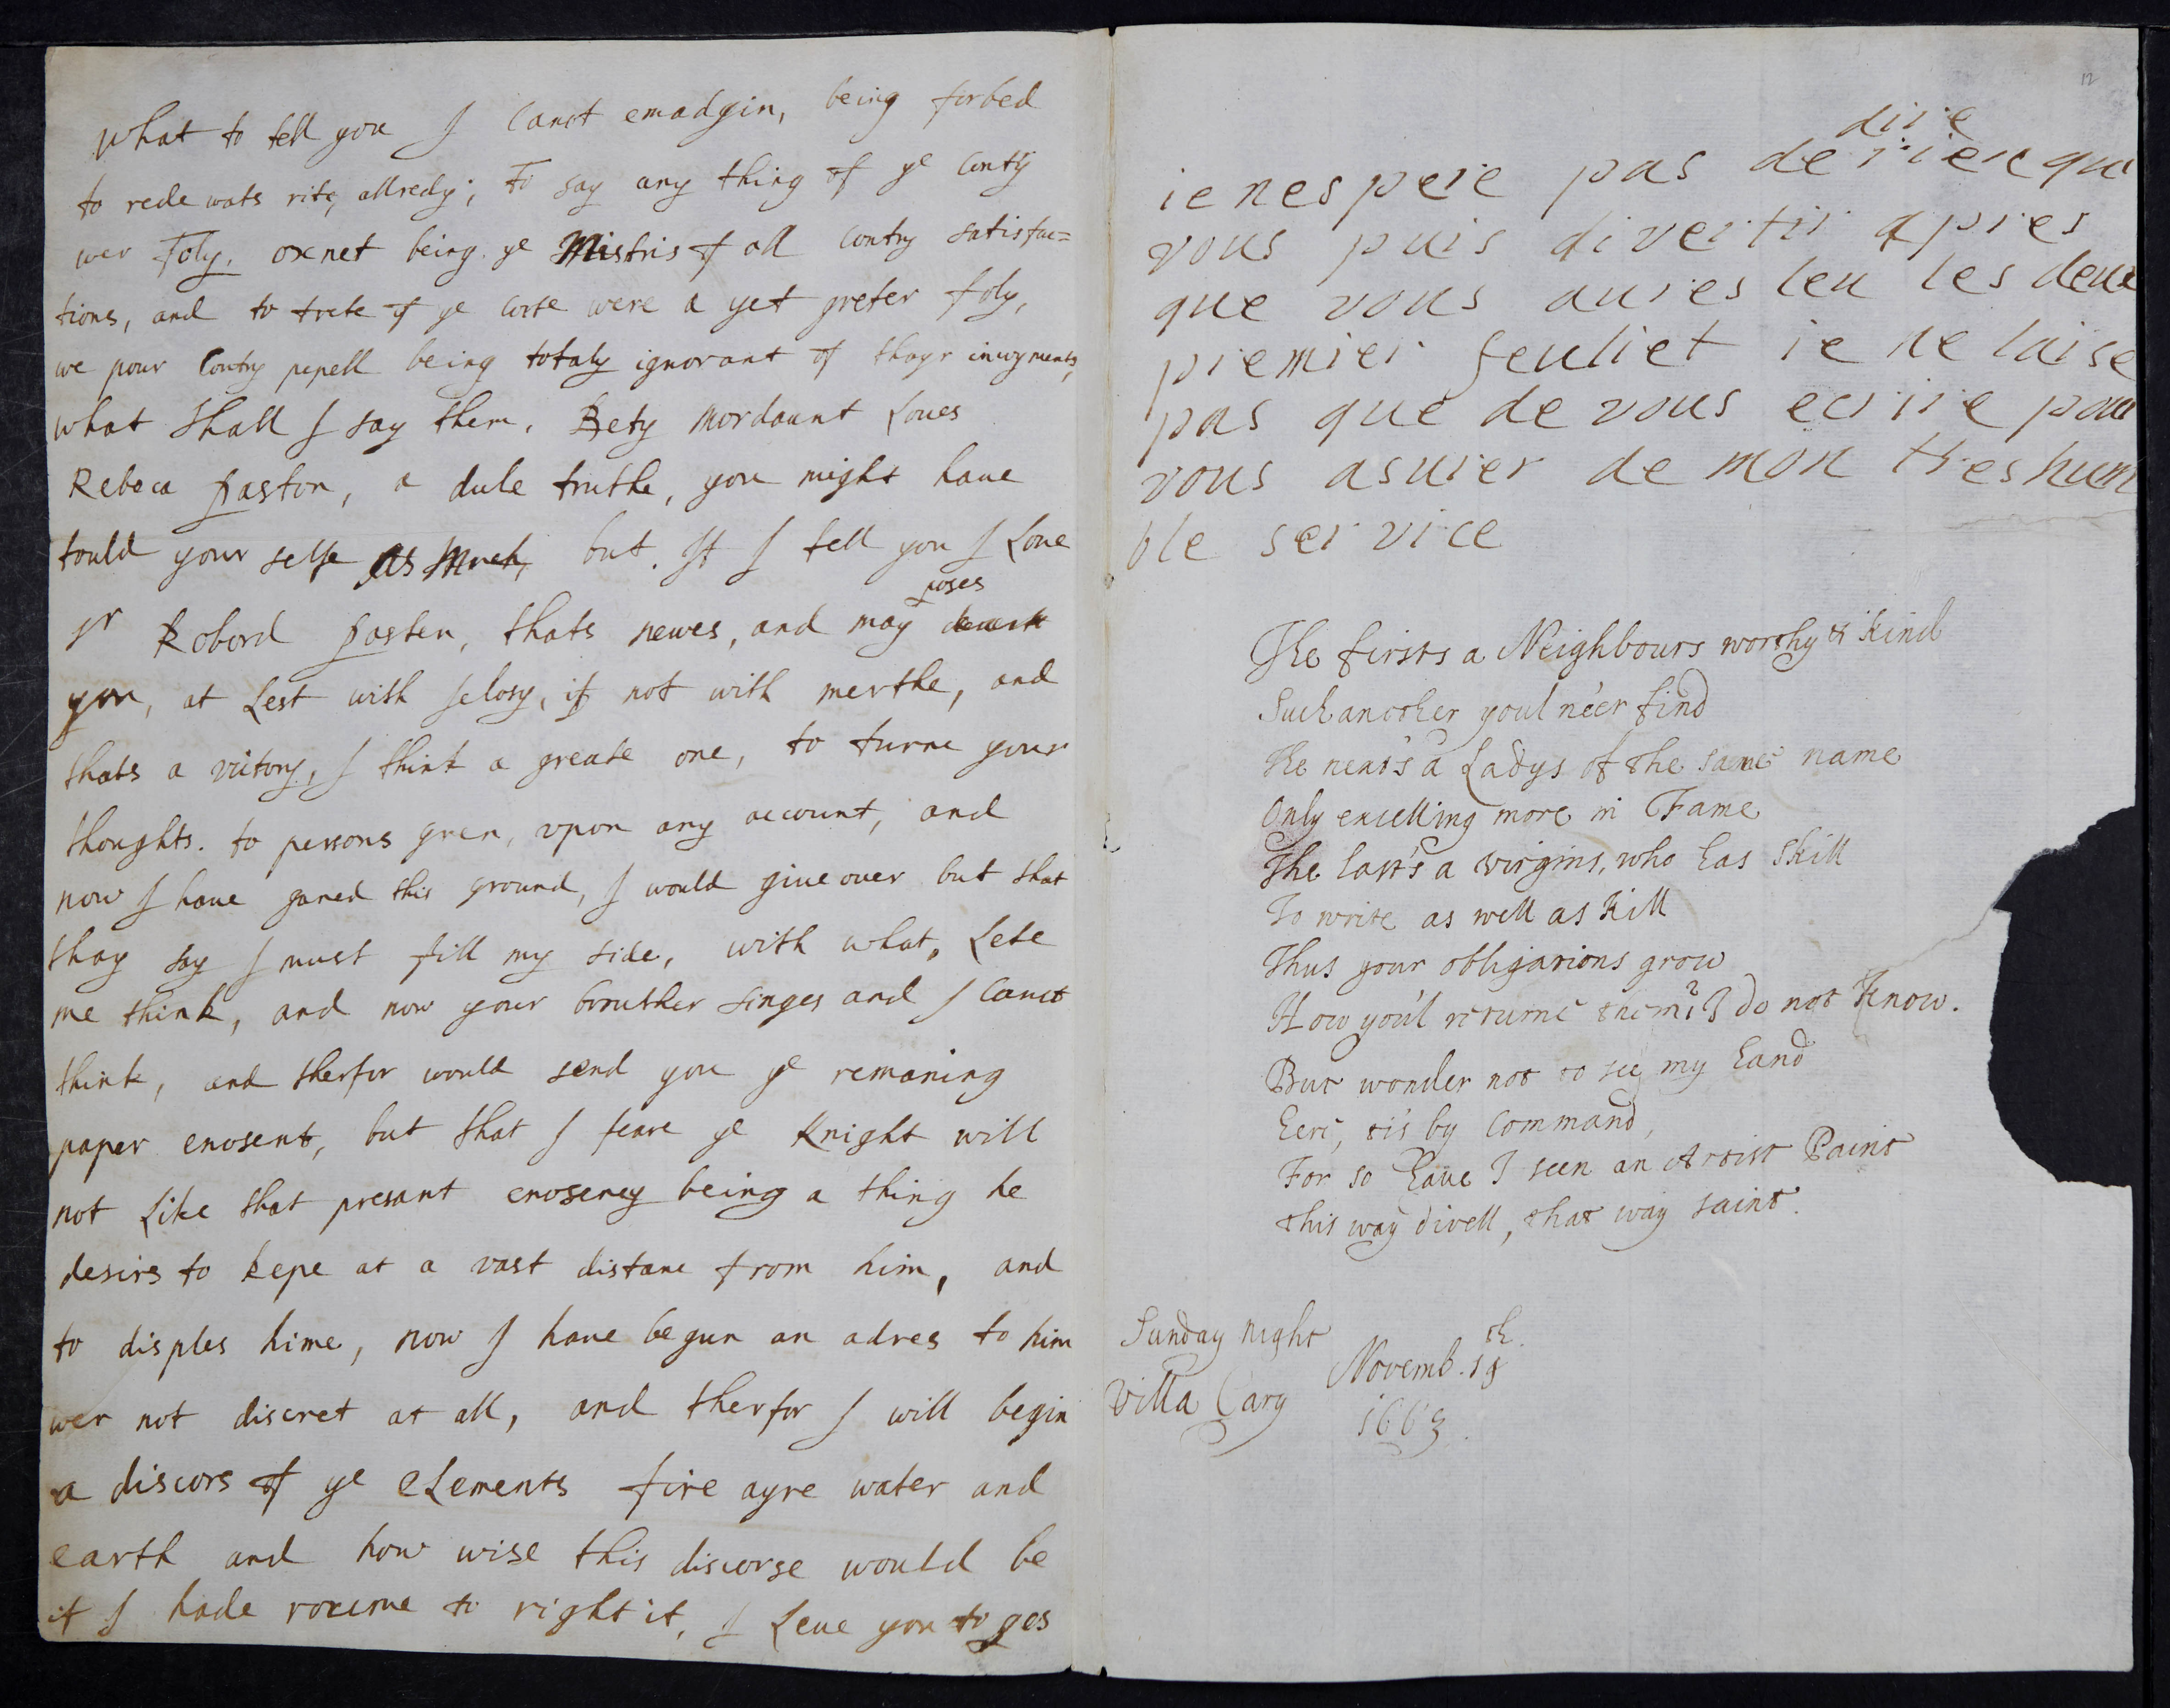 What to tell you I Canot emadgin, being forbed
to rede wats rite, allredy; To say any thing of ye Contry
wer Foly, oxnet being ye Mistris of all Contry satisfac=
tions, and to trete of ye Corte were a yet greter foly,
we pour Contry pepell being totaly ignorant of thayr inioyments,
what Shall I say them, Bety Mordaunt Loues
Rebeca Paston, a dule truthe, you might haue
tould your selfe as Much, but. If I tell you I Loue
Sr Robord Pasten, thats newes, and may
poses
you, at Lest with Jelosy, if not with merthe, and
thats a victory, I think a greate one, to turne your
thoughts. to persons gren, vpon any account, and
now I haue ganed this ground, I would giue ouer but that
thay say I must fill my side, with what, Lete
me think, and now your brouther singes and I Canot
think, and therfor would send you ye remaning
paper enosent, but that I feare ye Knight will
not Like that presant enoseney being a thing he
desirs to kepe at a vast distanc from him, and
to disples hime, now I haue begun an adres to him
wer not discret at all, and therfor I will begin
a discors of ye eLements fire ayre water and
earth and how wise this discorse would be
if I hade roume to right it, I Leue you to ges
12
dire
ie nespere pas de rien qui
vous puis divertir apres
que vous aures leu les deux
premier feuliet ie ne laise
pas que de vous ecrire pour
vous asurer de mon tres hum
ble service
The firsts a Neighbours worthy & kind
Such another youl ne'er find
The next's a Ladys of the same name
Only excelling more in Fame
The last's a virgins, who has skill
To write as well as kill
Thus your obligations grow
How you'l returne them? I do not know.
But wonder not to see my hand
here, tis by Command,
For so haue I seen an Artist Paint
this way divell, that way saint.
Sunday night
Novemb. 18th.
Villa Cary
1663.